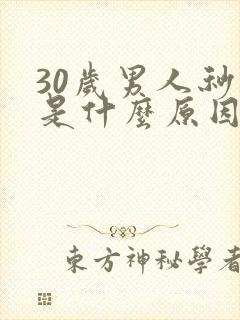 30歲男人秘
是什麼原因
東方神秘學者